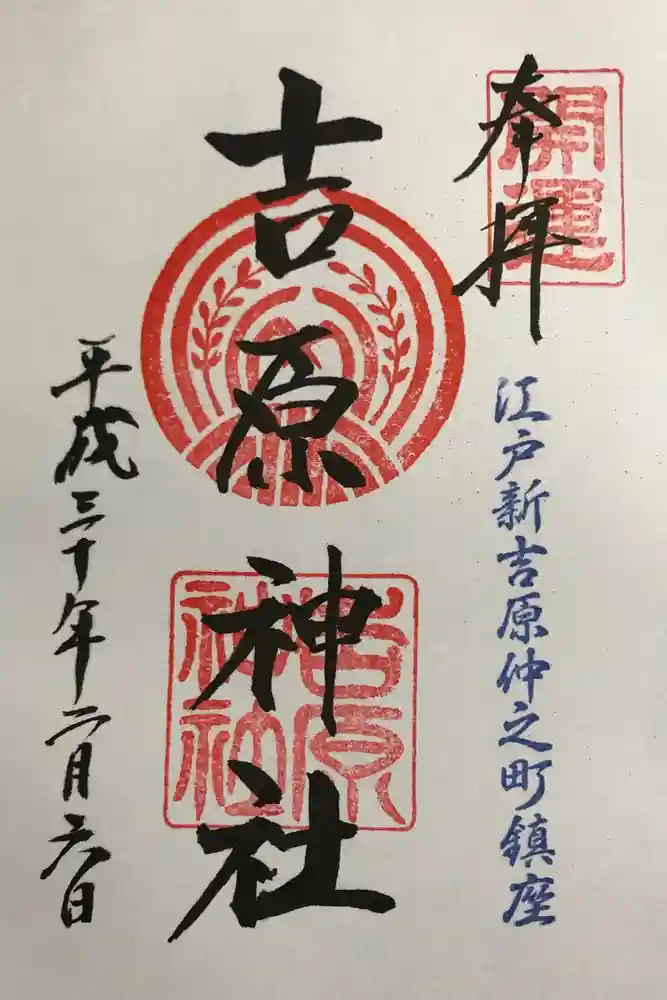 奉拝
開運
江戸新吉原仲之町鎮座
吉原神社
吉原
神社
平成三十年二月六日